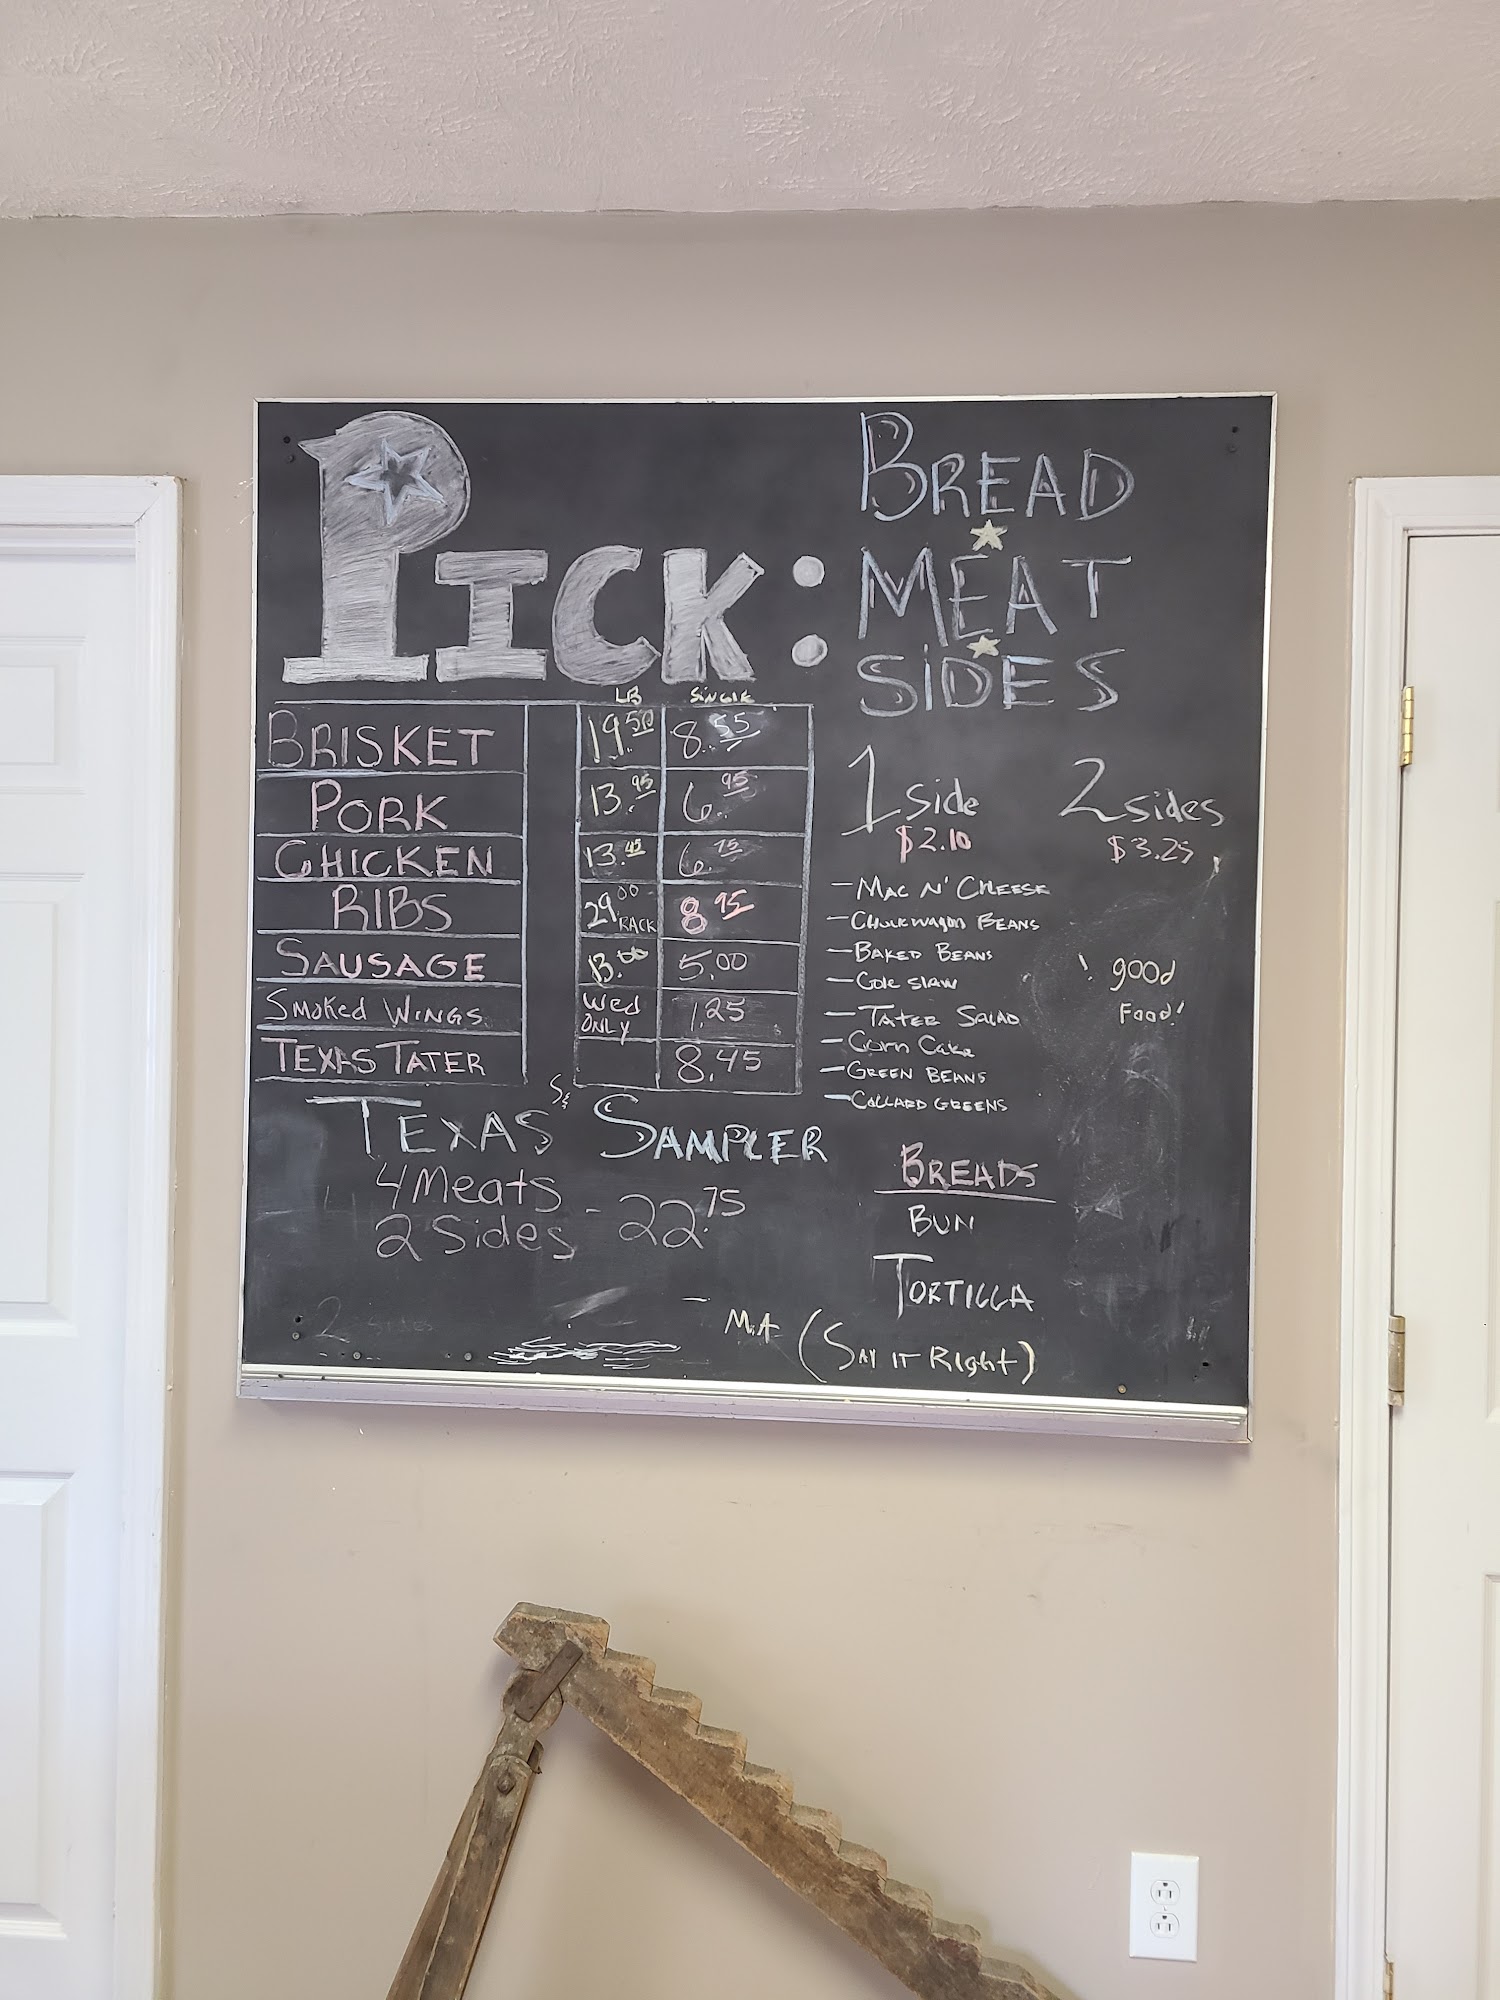 PICK:
BREAD
MEAT
SIDES
LB SINGLE
BRISKET 19.50 8.55
PORK 13.95 6.95
CHICKEN 13.45 6.75
RIBS 29.00 RACK 8.95
SAUSAGE 13.00 5.00
SMOKED WINGS Wed ONLY 1.25
TEXAS TATER 8.45
TEXAS SAMPLER
4 Meats
2 Sides - 22.75
1 Side 2 Sides
$2.10 $3.25
- MAC N' CHEESE
- CHUCKWAGON BEANS
- BAKED BEANS
- Cole slaw
- TATER SALAD
- Corn Cake
- GREEN BEANS
- COLLARD GREENS
! good
Food!
BREADS
BUN
TORTILLA
(SAY IT Right)
2 Sides